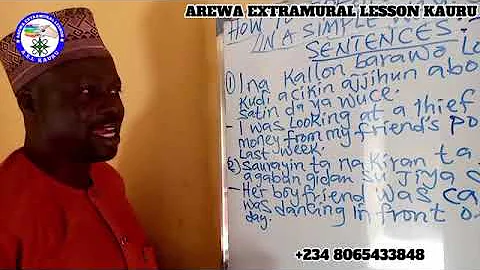 AREWA EXTRAMURAL LESSON KAURU
HOW TO
IN A SIMPLE
SENTENCES.
① Ina kallon barawo
kudi acikin ajjihun abo
satin da ya wuce.
- I was looking at a thief
money from my friend's po
last week.
② Saurayin ta na kiran ta
agaban gidan su jiya
- Her boyfriend was ca
was dancing in front o
day.
+234 8065433848